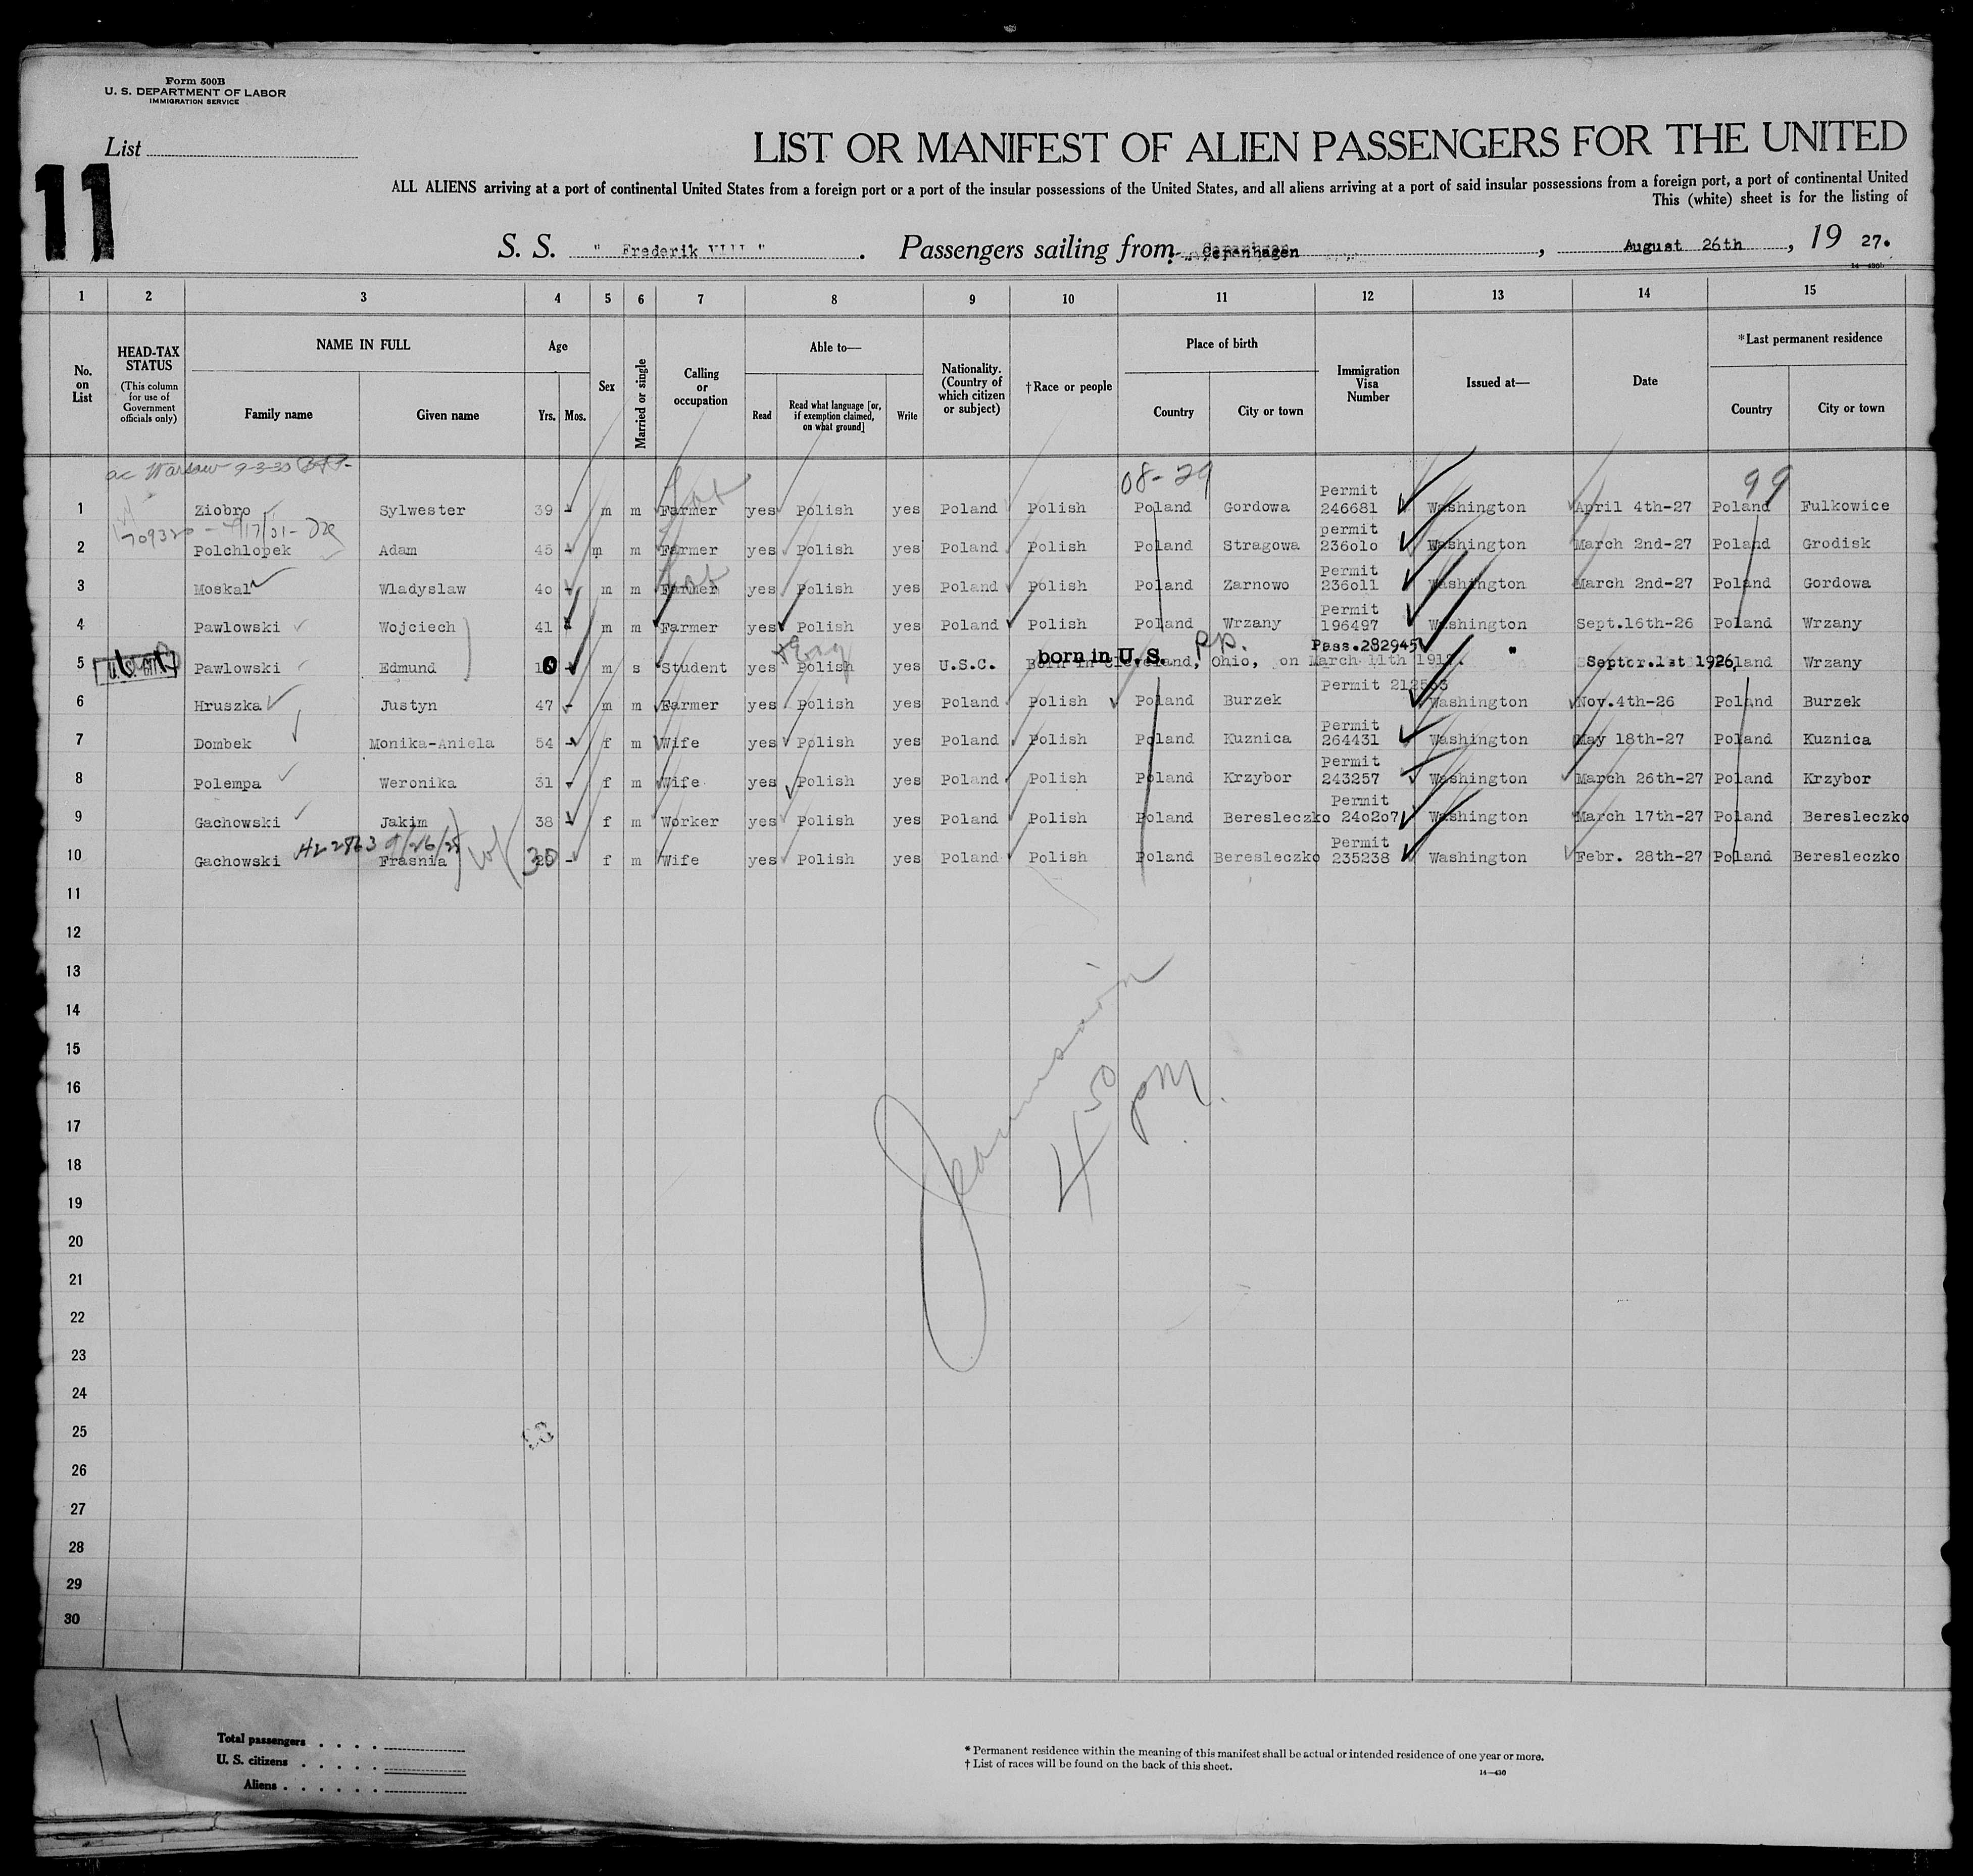 Form 500B
U. S. DEPARTMENT OF LABOR
IMMIGRATION SERVICE
List
11
LIST OR MANIFEST OF ALIEN PASSENGERS FOR THE UNITED
ALL ALIENS arriving at a port of continental United States from a foreign port or a port of the insular possessions of the United States, and all aliens arriving at a port of said insular possessions from a foreign port, a port of continental United
This (white) sheet is for the listing of
S. S. " Frederik VIII " . Passengers sailing from Copenhagen , August 26th , 19 27.
1 2 3 4 5 6 7 8 9 10 11 12 13 14 15
No. on List
HEAD-TAX STATUS (This column for use of Government officials only)
NAME IN FULL
Family name Given name
Age
Yrs. Mos.
Sex
Married or single
Calling or occupation
Able to—
Read Read what language [or, if exemption claimed, on what ground] Write
Nationality. (Country of which citizen or subject)
†Race or people
Place of birth
Country City or town
Immigration Visa Number
Issued at—
Date
*Last permanent residence
Country City or town
ac Warsaw 9-3-30
08-29 99
1 Ziobro Sylwester 39 - m m Farmer yes Polish yes Poland Polish Poland Gordowa Permit 246681 Washington April 4th-27 Poland Fulkowice
2 Polchlopek Adam 45 - m m Farmer yes Polish yes Poland Polish Poland Stragowa permit 236olo Washington March 2nd-27 Poland Grodisk
3 Moskal Wladyslaw 4o - m m Farmer yes Polish yes Poland Polish Poland Zarnowo Permit 236o11 Washington March 2nd-27 Poland Gordowa
4 Pawlowski Wojciech 41 - m m Farmer yes Polish yes Poland Polish Poland Wrzany Permit 196497 Washington Sept.16th-26 Poland Wrzany
5 U.S. CIT. Pawlowski Edmund 10 - m s Student yes Polish + Eng yes U.S.C. Born in Cleveland, Ohio, on March 11th 1917. born in U. S. pp. Pass.282945 " Septbr.1st 1926, Poland Wrzany
6 Hruszka Justyn 47 - m m Farmer yes Polish yes Poland Polish Poland Burzek Permit 212563 Washington Nov.4th-26 Poland Burzek
7 Dombek Monika-Aniela 54 - f m Wife yes Polish yes Poland Polish Poland Kuznica Permit 264431 Washington May 18th-27 Poland Kuznica
8 Polempa Weronika 31 - f m Wife yes Polish yes Poland Polish Poland Krzybor Permit 243257 Washington March 26th-27 Poland Krzybor
9 Gachowski Jakim 38 - f m Worker yes Polish yes Poland Polish Poland Beresleczko Permit 24o2o7 Washington March 17th-27 Poland Beresleczko
10 Gachowski Frasnia 30 - f m Wife yes Polish yes Poland Polish Poland Beresleczko Permit 235238 Washington Febr. 28th-27 Poland Beresleczko
11
12
13
14
15
16
17
18
19
20
21
22
23
24
25
26
27
28
29
30
4 50 PM.
11
Total passengers
U. S. citizens
Aliens
* Permanent residence within the meaning of this manifest shall be actual or intended residence of one year or more.
† List of races will be found on the back of this sheet.
14—430